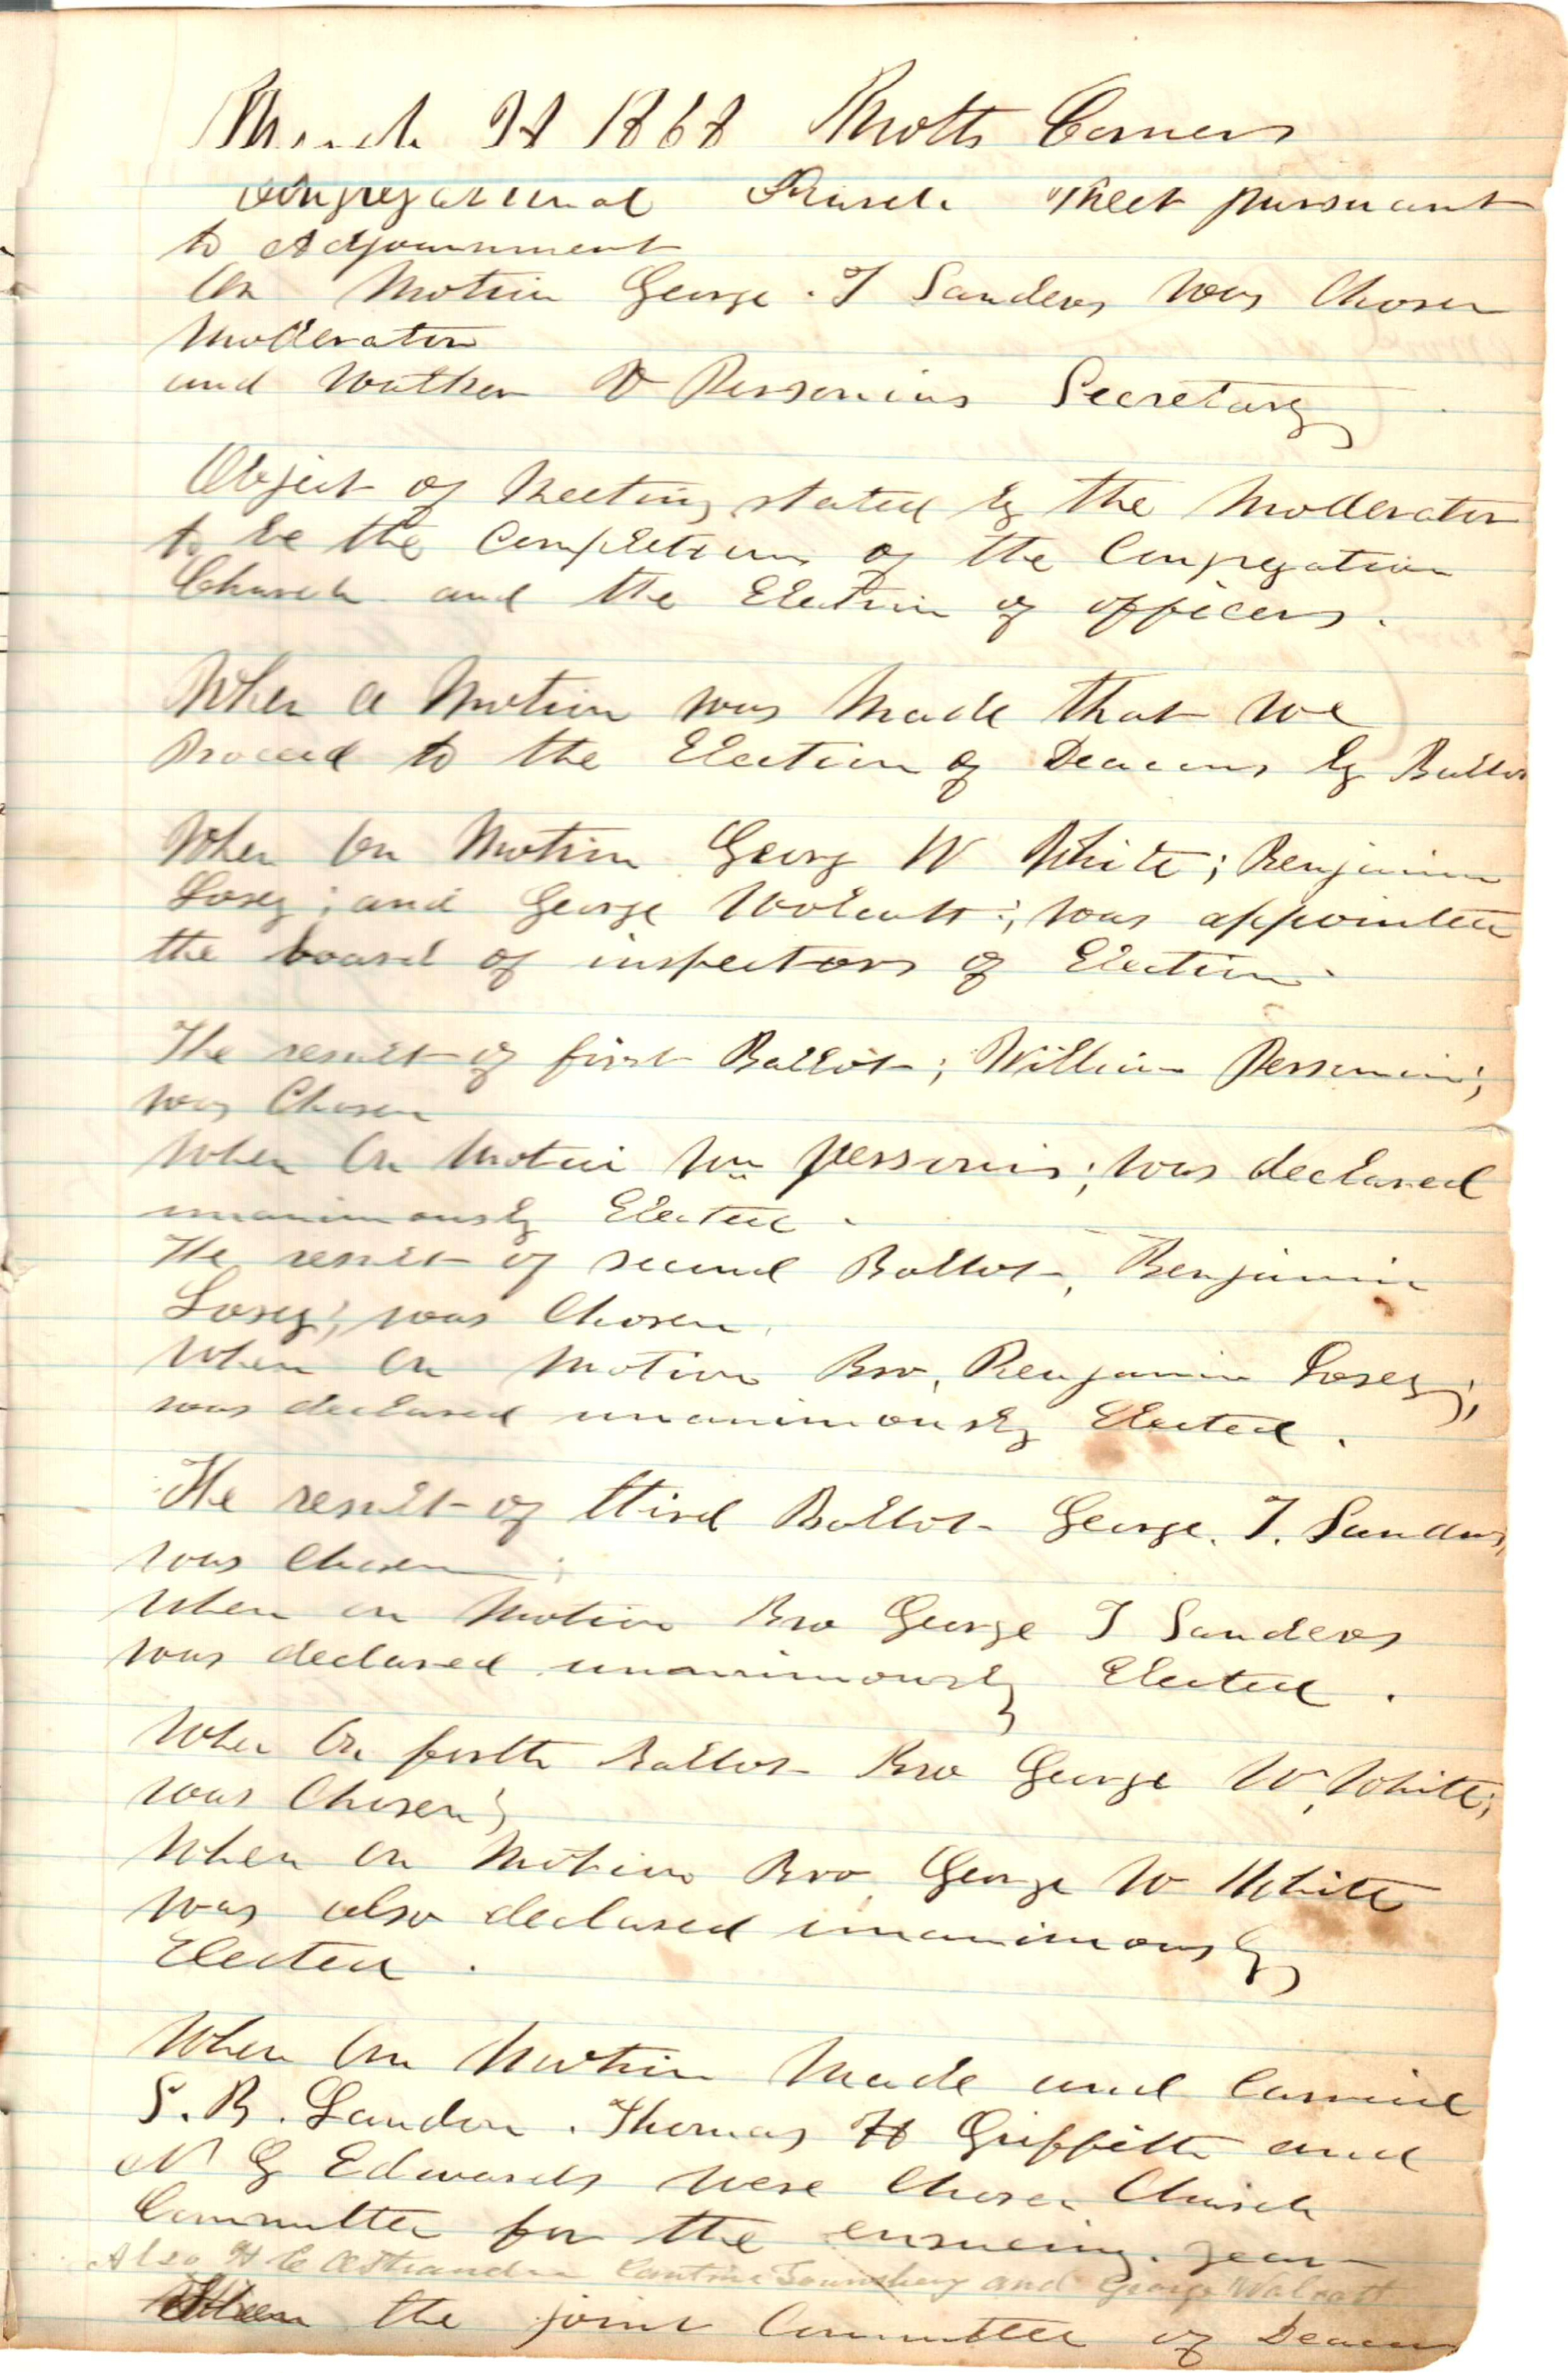 March 1868 Motts Corners
Congregational Church Meet pursuant
to Adjournment
On Motion George . T Sanders was Chosen
Moderator
and Personius Secretary
Object of Meeting stated by the Moderator
to be the Completion of the Congregation
Church and the Election of officers .
When a Motion was Made that we
Proceed to the Election of Deacons by Ballot
When On Motion Georg W White ; Benjamin
Losey ; and George Wolcott ; was appointed
the board of inspectors of Election .
The result of first Ballot ; William Personius ;
was Chosen
When On Motion Wm Personius ; was declared
unanimously Elected .
The result of second Ballot , Benjamin
Losey ; was Chosen .
When On Motion Bro , Benjamin Losey ;
was declared unanimously Elected .
The result of third Ballot George . T . Sanders
was Chosen ;
When on Motion Bro George T Sanders
was declared unanimously Elected .
When On forth Ballot Bro George W White ;
was Chosen ;
When on Motion Bro George W White
was also declared unanimously
Elected .
When On Motion Made and Carried
S . B . Landon . Thomas H Griffith and
N G Edwards were Chosen Church
Committee for the ensueing . year
Also H C Ostrander Cantine Lounsbery and George Walcott
When the joint Committee of Deacons